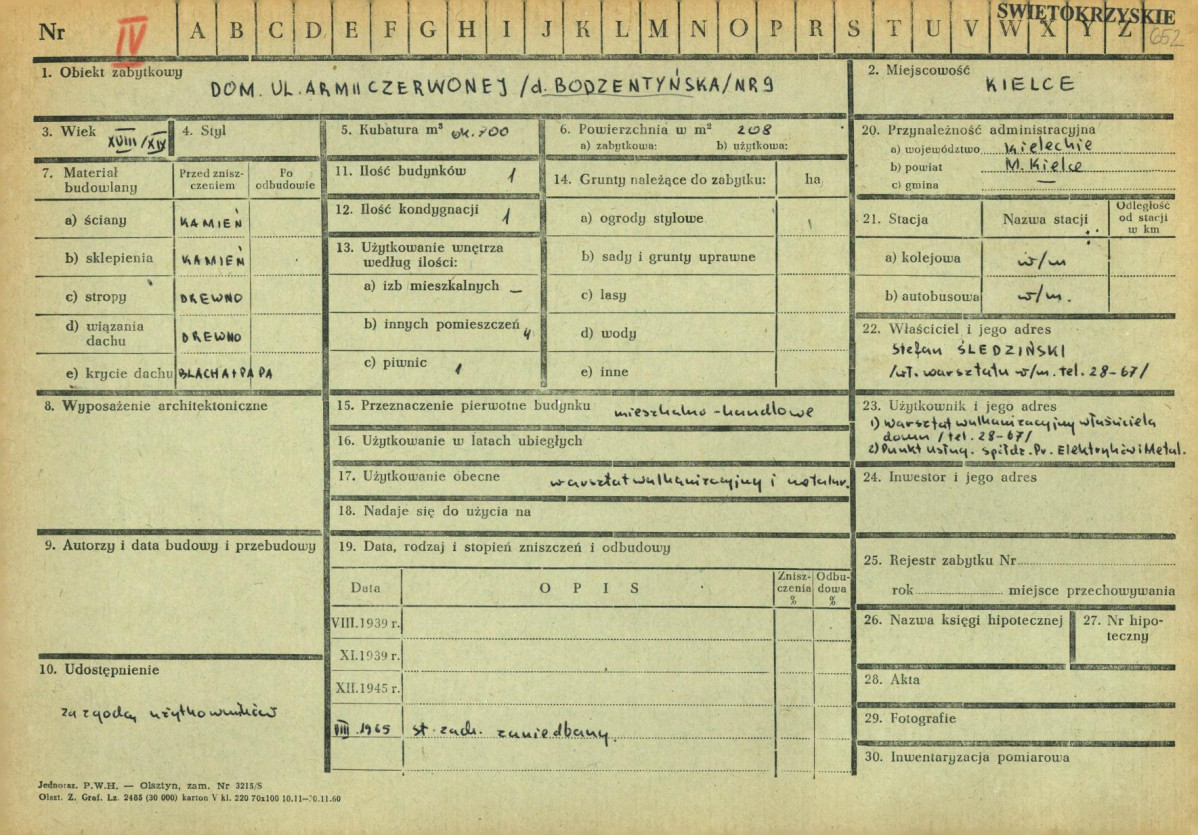 Nr IV A B C D E F G H I J K L M N O P R S T U V W X Y Z ŚWIĘTOKRZYSKIE
652
1. Obiekt zabytkowy
DOM. UL. ARMII CZERWONEJ /d. BODZENTYŃSKA/NR 9
2. Miejscowość
KIELCE
3. Wiek XVIII/XIX
4. Styl
5. Kubatura m³ ok. 700
6. Powierzchnia w m² 208
a) zabytkowa: b) użytkowa:
20. Przynależność administracyjna
a) województwo Kieleckie
b) powiat M. Kielce
c) gmina —
7. Materiał budowlany
Przed zniszczeniem
Po odbudowie
a) ściany KAMIEŃ
b) sklepienia KAMIEŃ
c) stropy DREWNO
d) wiązania dachu DREWNO
e) krycie dachu BLACHA + PAPA
11. Ilość budynków 1
12. Ilość kondygnacji 1
13. Użytkowanie wnętrza według ilości:
a) izb mieszkalnych —
b) innych pomieszczeń 4
c) piwnic 1
14. Grunty należące do zabytku: ha
a) ogrody stylowe
b) sady i grunty uprawne
c) lasy
d) wody
e) inne
21. Stacja
Nazwa stacji
Odległość od stacji w km
a) kolejowa w/m
b) autobusowa w/m.
22. Właściciel i jego adres
Stefan ŚLEDZIŃSKI
/wł. warsztatu w/m. tel. 28-67/
8. Wyposażenie architektoniczne
15. Przeznaczenie pierwotne budynku mieszkalno-handlowe
16. Użytkowanie w latach ubiegłych
17. Użytkowanie obecne warsztat wulkanizacyjny i
18. Nadaje się do użycia na
23. Użytkownik i jego adres
1) Warsztat wulkanizacyjny właściciela
domu /tel. 28-67/
2) Punkt usług. spółdz. Pr. Elektryków i Metal.
24. Inwestor i jego adres
9. Autorzy i data budowy i przebudowy
19. Data, rodzaj i stopień zniszczeń i odbudowy
Data
OPIS
Zniszczenia %
Odbudowa %
VIII.1939 r.
XI.1939 r.
XII.1945 r.
VIII.1965 st. zach. zaniedbany.
25. Rejestr zabytku Nr
rok miejsce przechowywania
26. Nazwa księgi hipotecznej
27. Nr hipoteczny
10. Udostępnienie
za zgodą użytkowników
28. Akta
29. Fotografie
30. Inwentaryzacja pomiarowa
Jednoraz. P.W.H. — Olsztyn, zam. Nr 3215/S
Olszt. Z. Graf. Lz. 2485 (30 000) karton V kl. 220 70x100 10.11—10.11.60